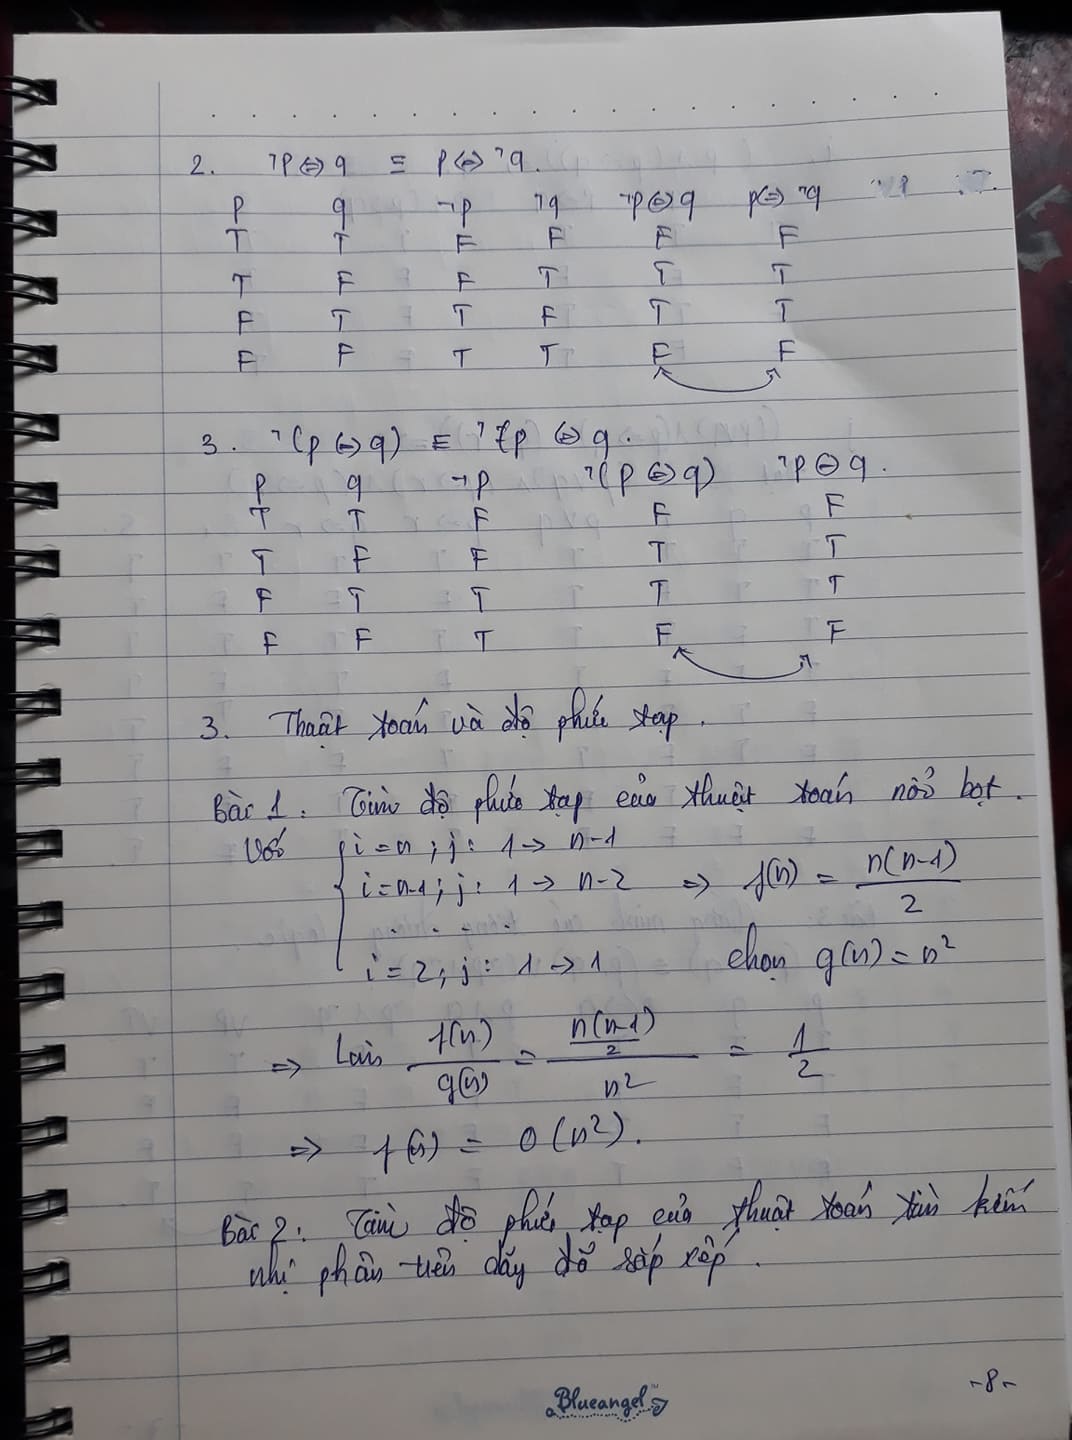 2. ¬p⇔q ≡ p⇔¬q.
p q ¬p ¬q ¬p⇔q p⇔¬q
T T F F F F
T F F T T T
F T T F T T
F F T T F F
3. ¬(p⇔q) ≡ ¬p ⇔ q.
p q ¬p ¬(p⇔q) ¬p⇔q.
T T F F F
T F F T T
F T T T T
F F T F F
3. Thuật toán và độ phức tạp.
Bài 1: Tìm độ phức tạp của thuật toán nổi bọt.
Với { i=n; j: 1→ n-1
i=n-1; j: 1→ n-2 ⇒ f(n) = n(n-1)/2
. . . .
i=2; j: 1→1 chọn g(n)=n²
⇒ Lim f(n)/g(n) = (n(n-1)/2)/n² = 1/2
⇒ f(n) = O(n²).
Bài 2: Tìm độ phức tạp của thuật toán tìm kiếm
nhị phân trên dãy đã sắp xếp.
Blueangel
-8-